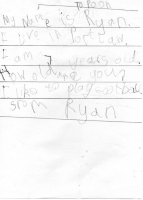 My Name is Ryan.
I live in Portlaw.
I am 7 years old.
How old are you?
I like to play football.
from Ryan